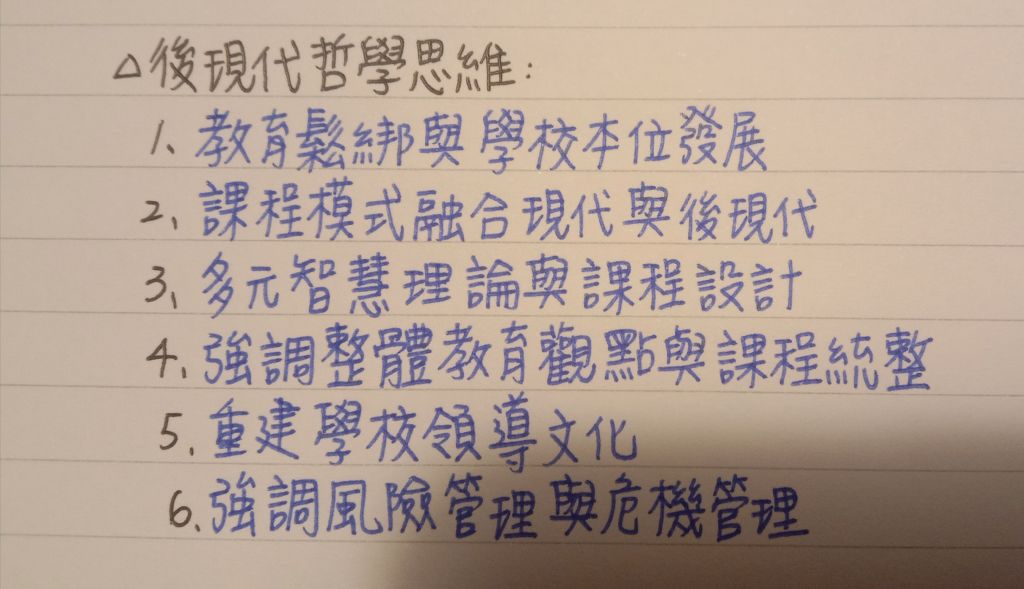 △後現代哲學思維:
1、教育鬆綁與學校本位發展
2、課程模式融合現代與後現代
3、多元智慧理論與課程設計
4、強調整體教育觀點與課程統整
5.重建學校領導文化
6.強調風險管理與危機管理